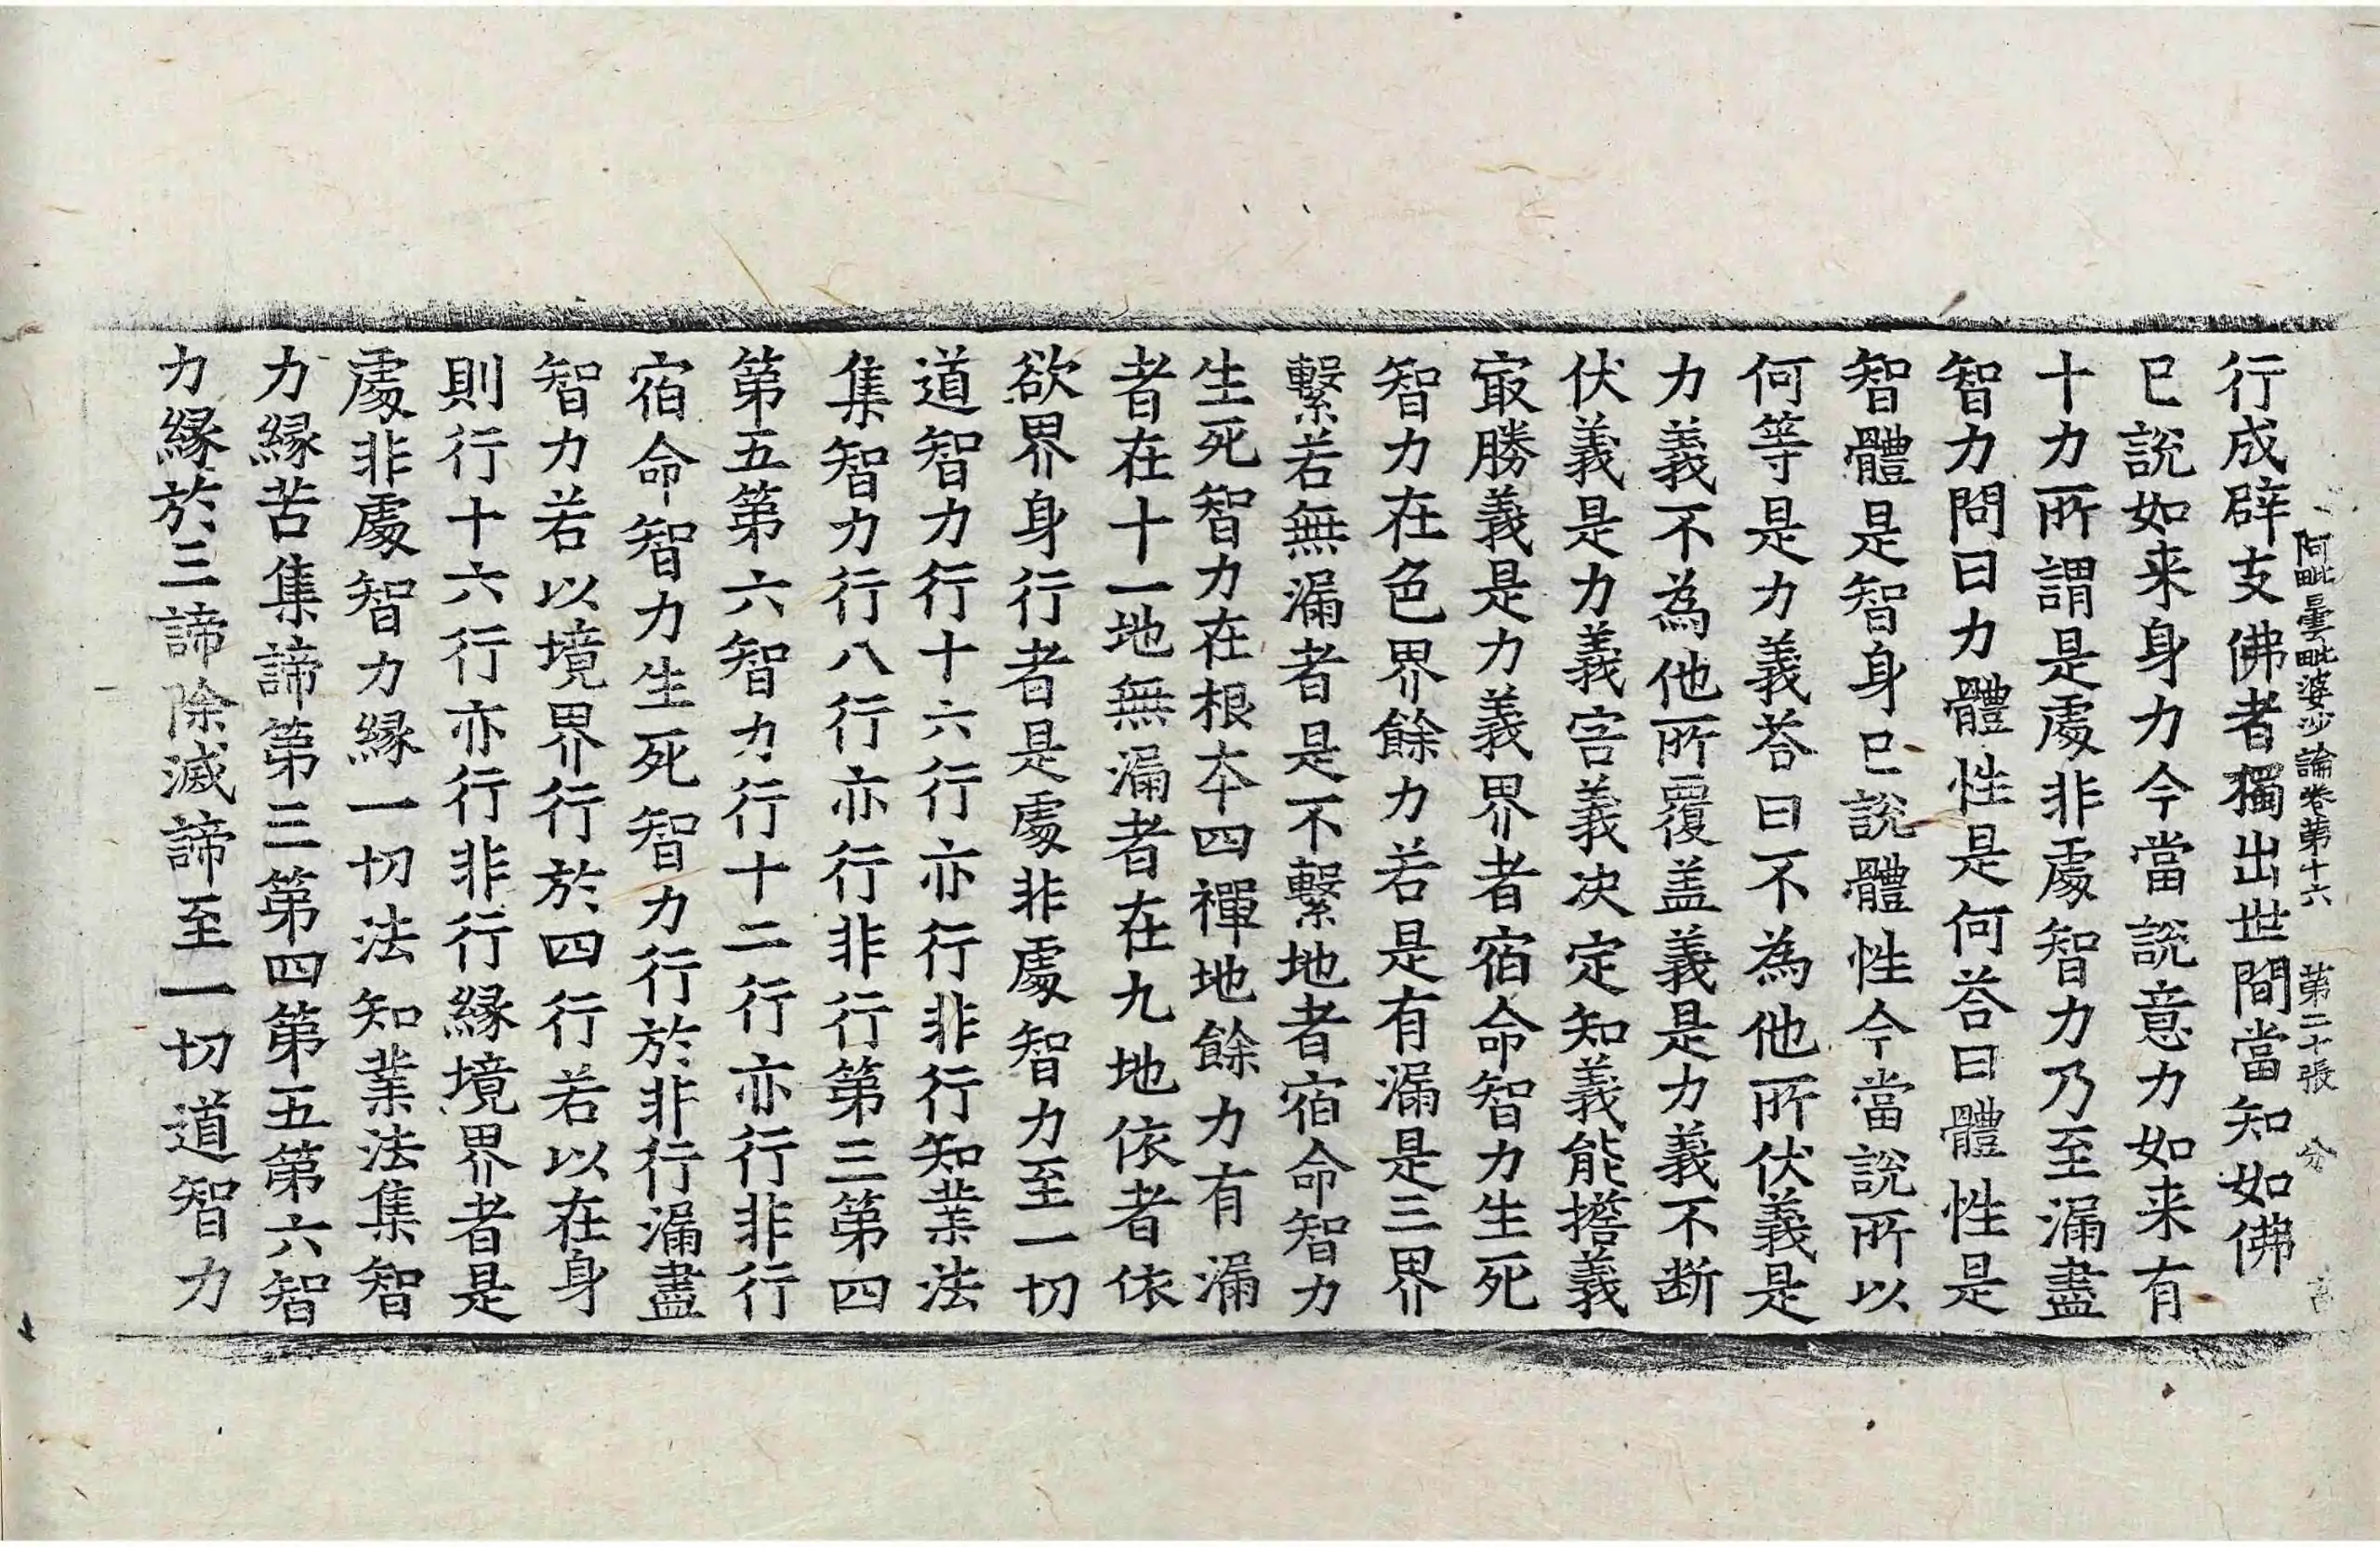 阿毗曇毗婆沙論卷第十六　第二十張　分
行成辟支佛者獨出世間當知如佛
已說如来身力今當說意力如来有
十力所謂是處非處智力乃至漏盡
智力問曰力體性是何荅曰體性是
智體是智身已說體性今當說所以
何等是力義荅曰不為他所伏義是
力義不為他所覆盖義是力義不断
伏義是力義害義决定知義能擔義
冣勝義是力義界者宿命智力生死
智力在色界餘力若是有漏是三界
繫若無漏者是不繫地者宿命智力
生死智力在根本四禪地餘力有漏
者在十一地無漏者在九地依者依
欲界身行者是處非處智力至一切
道智力行十六行亦行非行知業法
集智力行八行亦行非行第三第四
第五第六智力行十二行亦行非行
宿命智力生死智力行於非行漏盡
智力若以境界行於四行若以在身
則行十六行亦行非行緣境界者是
處非處智力緣一切法知業法集智
力緣苦集諦第三第四第五第六智
力緣於三諦除滅諦至一切道智力